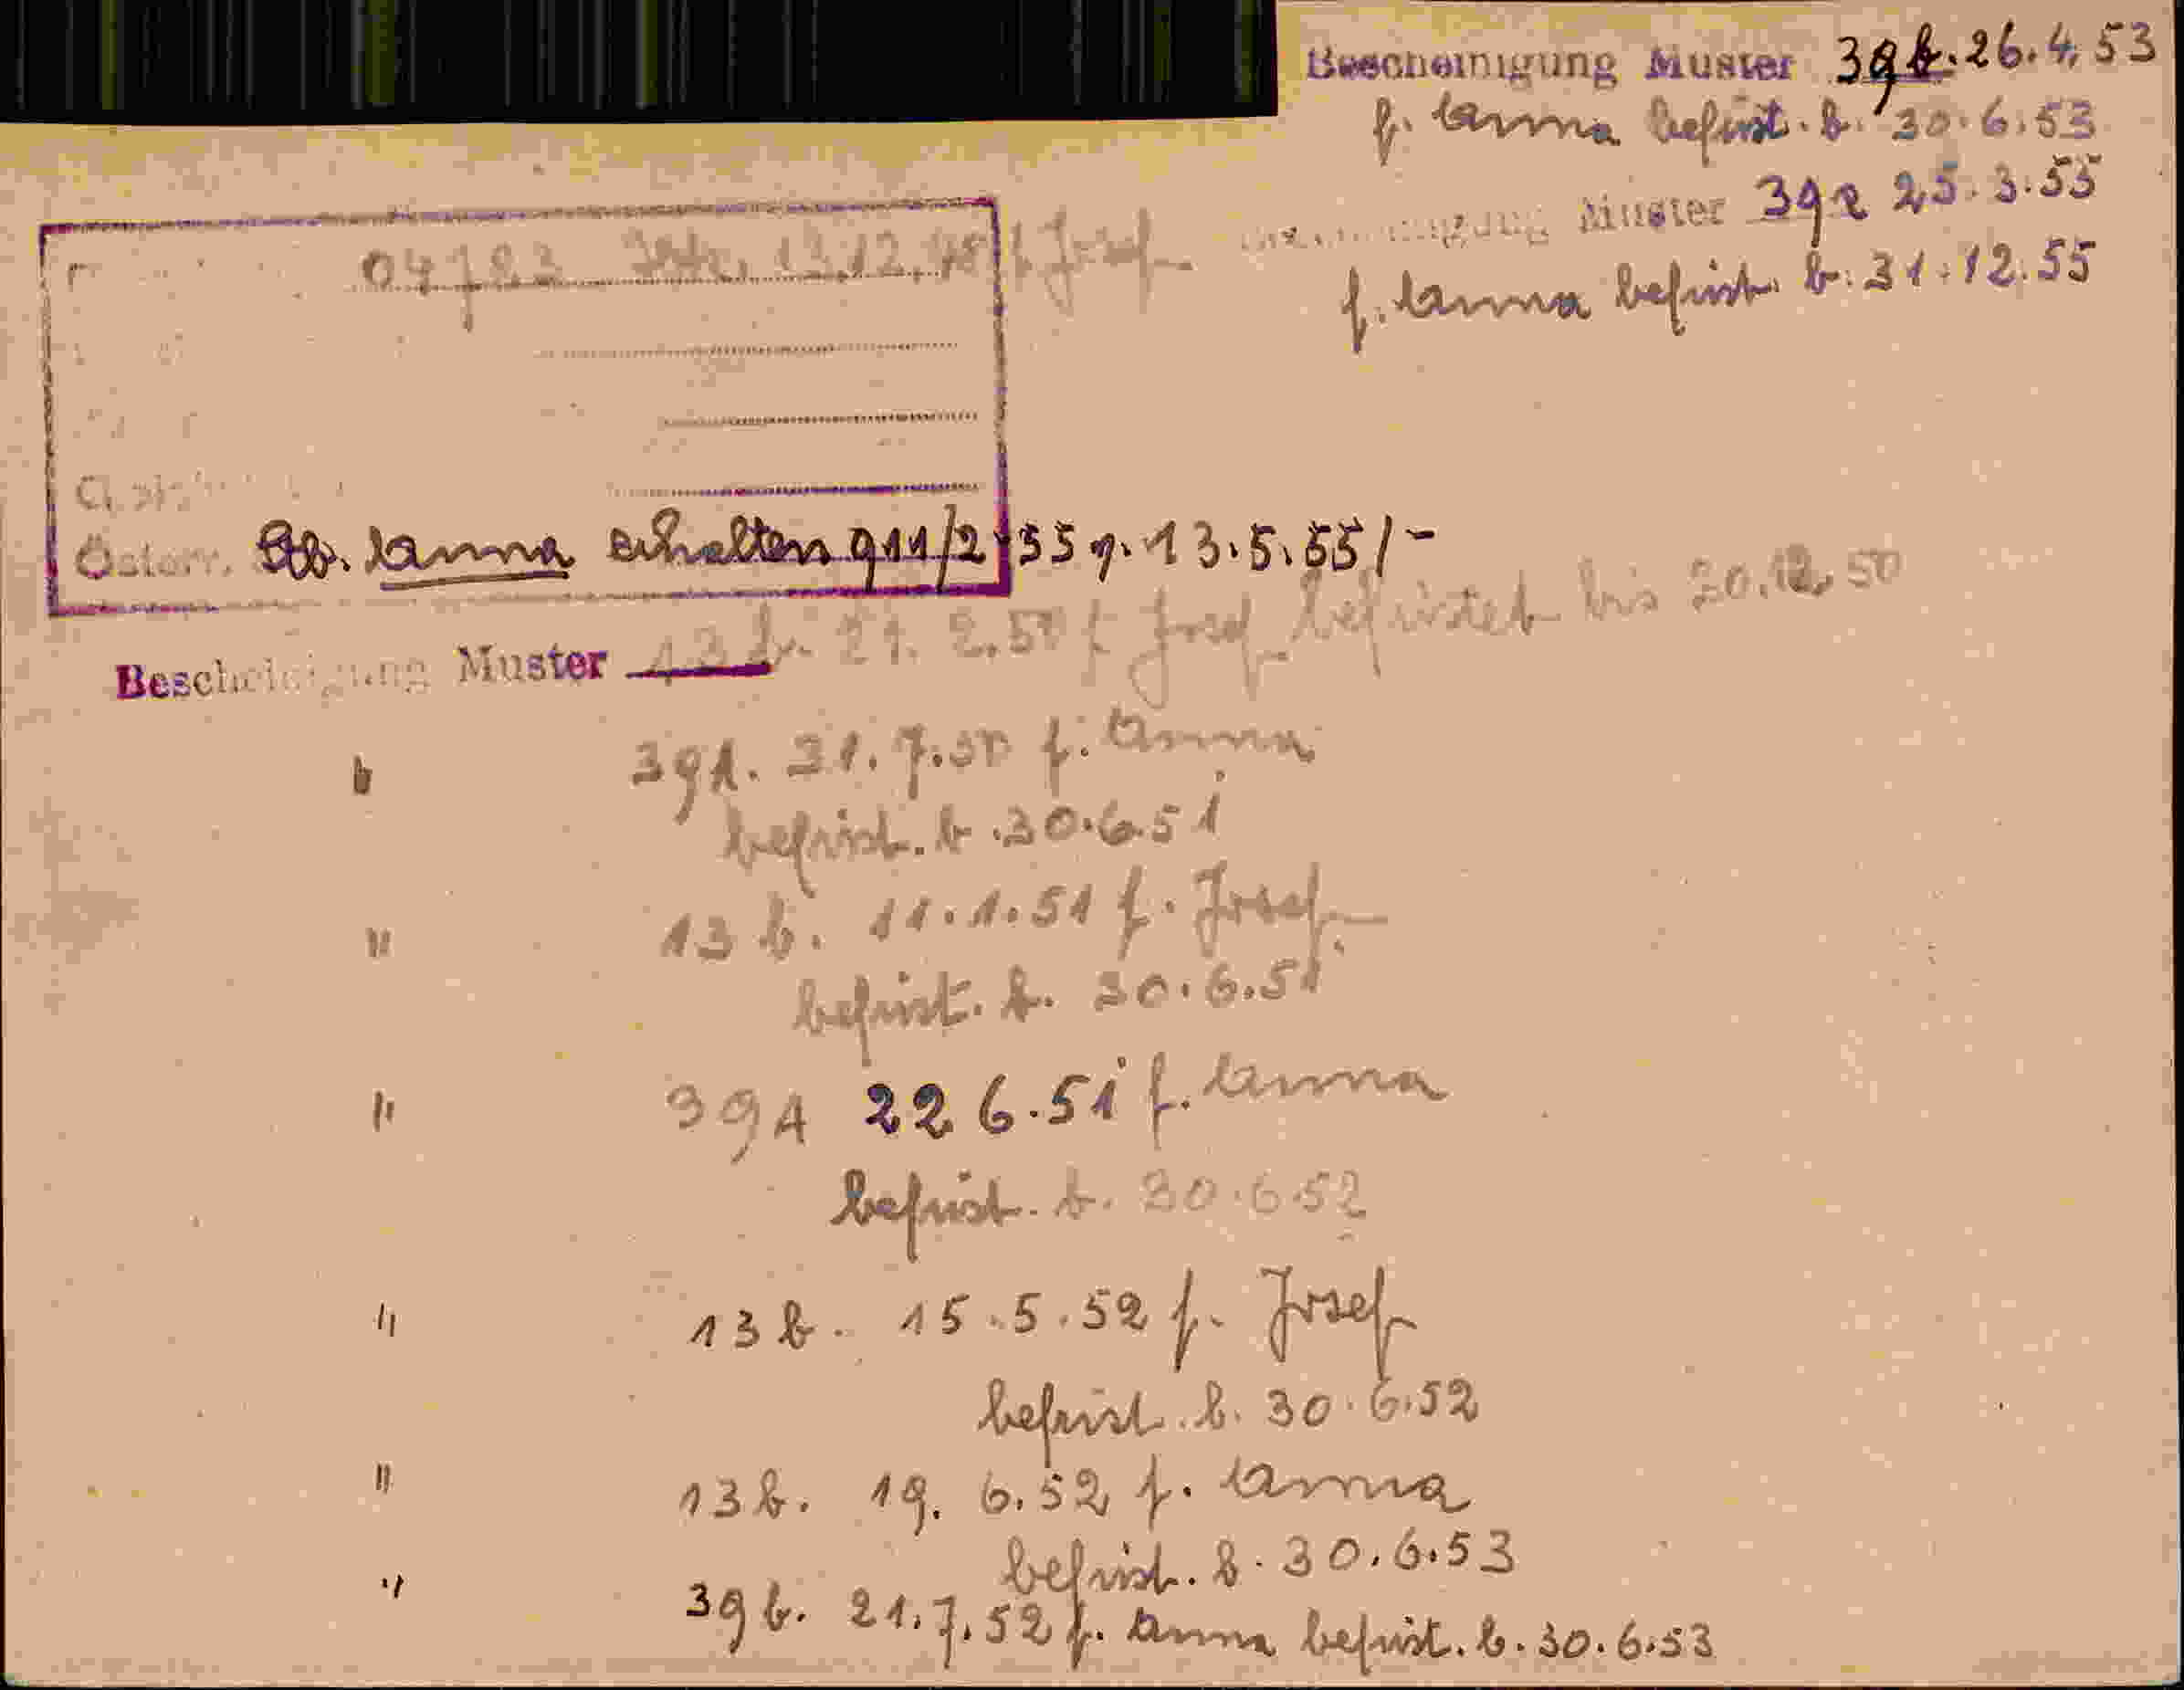 Bescheinigung Muster 39b. 26.4.53
f. Anna befrist. b. 30.6.53
Muster 39a 25.3.55
f. Anna befrist. b. 31.12.55
04783 13.12.48 f Josef
Österr. Stb. Anna erhalten 911/2-55 v. 13.5.55/-
Bescheinigung Muster 13b. 21.2.50 f Josef befristet bis 20.12.50
" 39A. 31.7.50 f. Anna
befrist. b. 30.6.51
" 13b. 11.1.51 f. Josef
befrist. b. 30.6.51
" 39A 22 6.51 f. Anna
befrist. b. 30.6.52
" 13b. 15.5.52 f. Josef
befrist. b. 30.6.52
" 13b. 19.6.52 f. Anna
befrist. b. 30.6.53
" 39b. 21.7.52 f. Anna befrist. b. 30.6.53